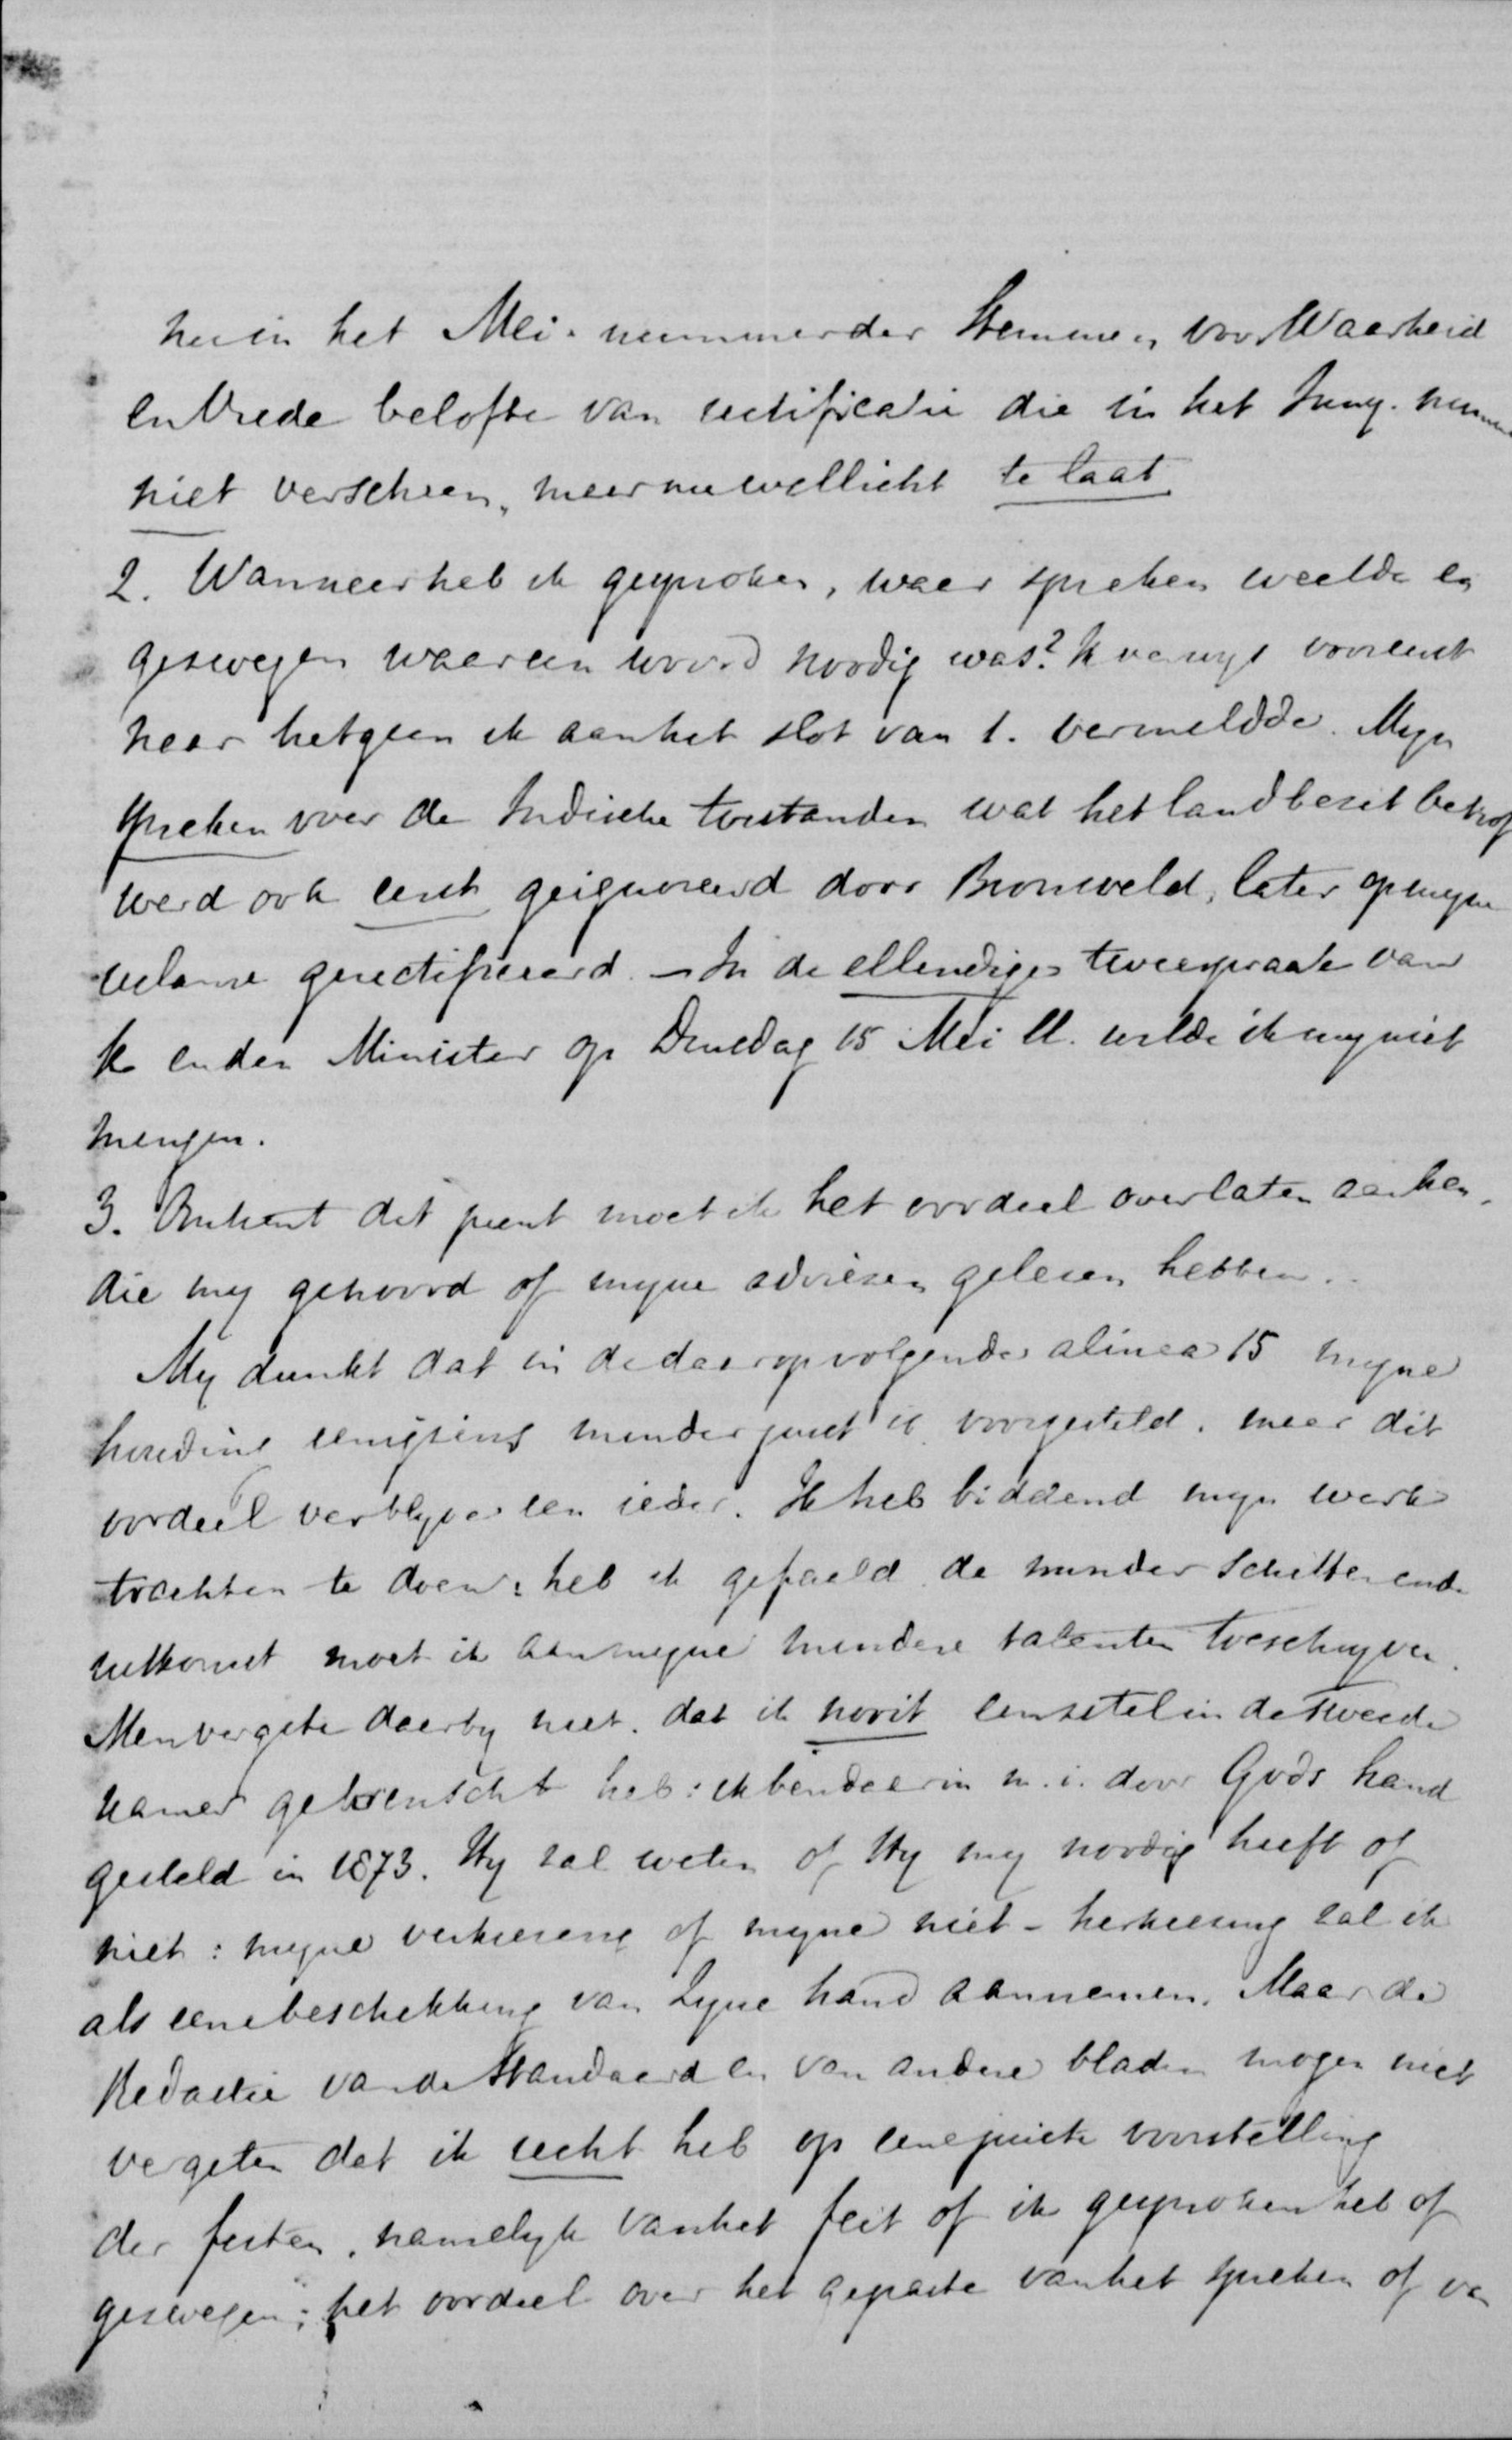 hier in het Mei-nummer der Stemmen voor Waarheid
en Vrede belofte van rectificatie die in het Juny-nummer
niet verscheen, maar nu wellicht te laat
2. Wanneer heb ik gesproken, waar spreken weelde en
gezwegen waar een woord noodig was? Ik verwys vooreerst
naar hetgeen ik aan het slot van 1. vermeldde. Myn
spreken over de Indische toestanden wat het landbezit betrof
werd ook eerst geignoreerd door Bronsveld, later op myne
reclame gerectificeerd. – In de ellendige tweespraak van
K en den Minister op Dinsdag 15 Mei ll. wilde ik my niet
mengen.
3. Omtrent dit punt moet ik het oordeel overlaten aan hen,
die my gehoord of myne adviezen gelezen hebben.
My dunkt dat in de daaropvolgende alinea 15 myne
houding eenigzins minder juist is voorgesteld. maar dit
oordeel verblyve een ieder. Ik heb biddend myn werk
trachten te doen: heb ik gefaald de minder schitterende
uitkomst moet ik aan myne mindere talenten toeschryven.
Men vergete daarby niet, dat ik nooit een zetel in de Tweede
Kamer gewenscht heb: ik ben daarin m.i. door Gods hand
gesteld in 1873. Hy zal weten of Hy my noodig heeft of
niet: myne verkiezing of myne niet-herkiezing zal ik
als eene beschikking van Zyne hand aannemen. Maar de
Redactie van de Standaard en van andere bladen mogen niet
vergeten dat ik recht heb op eene juiste voorstelling
der feiten, namelyk van het feit of ik gesproken heb of
gezwegen; het oordeel over het gepaste van het spreken of van